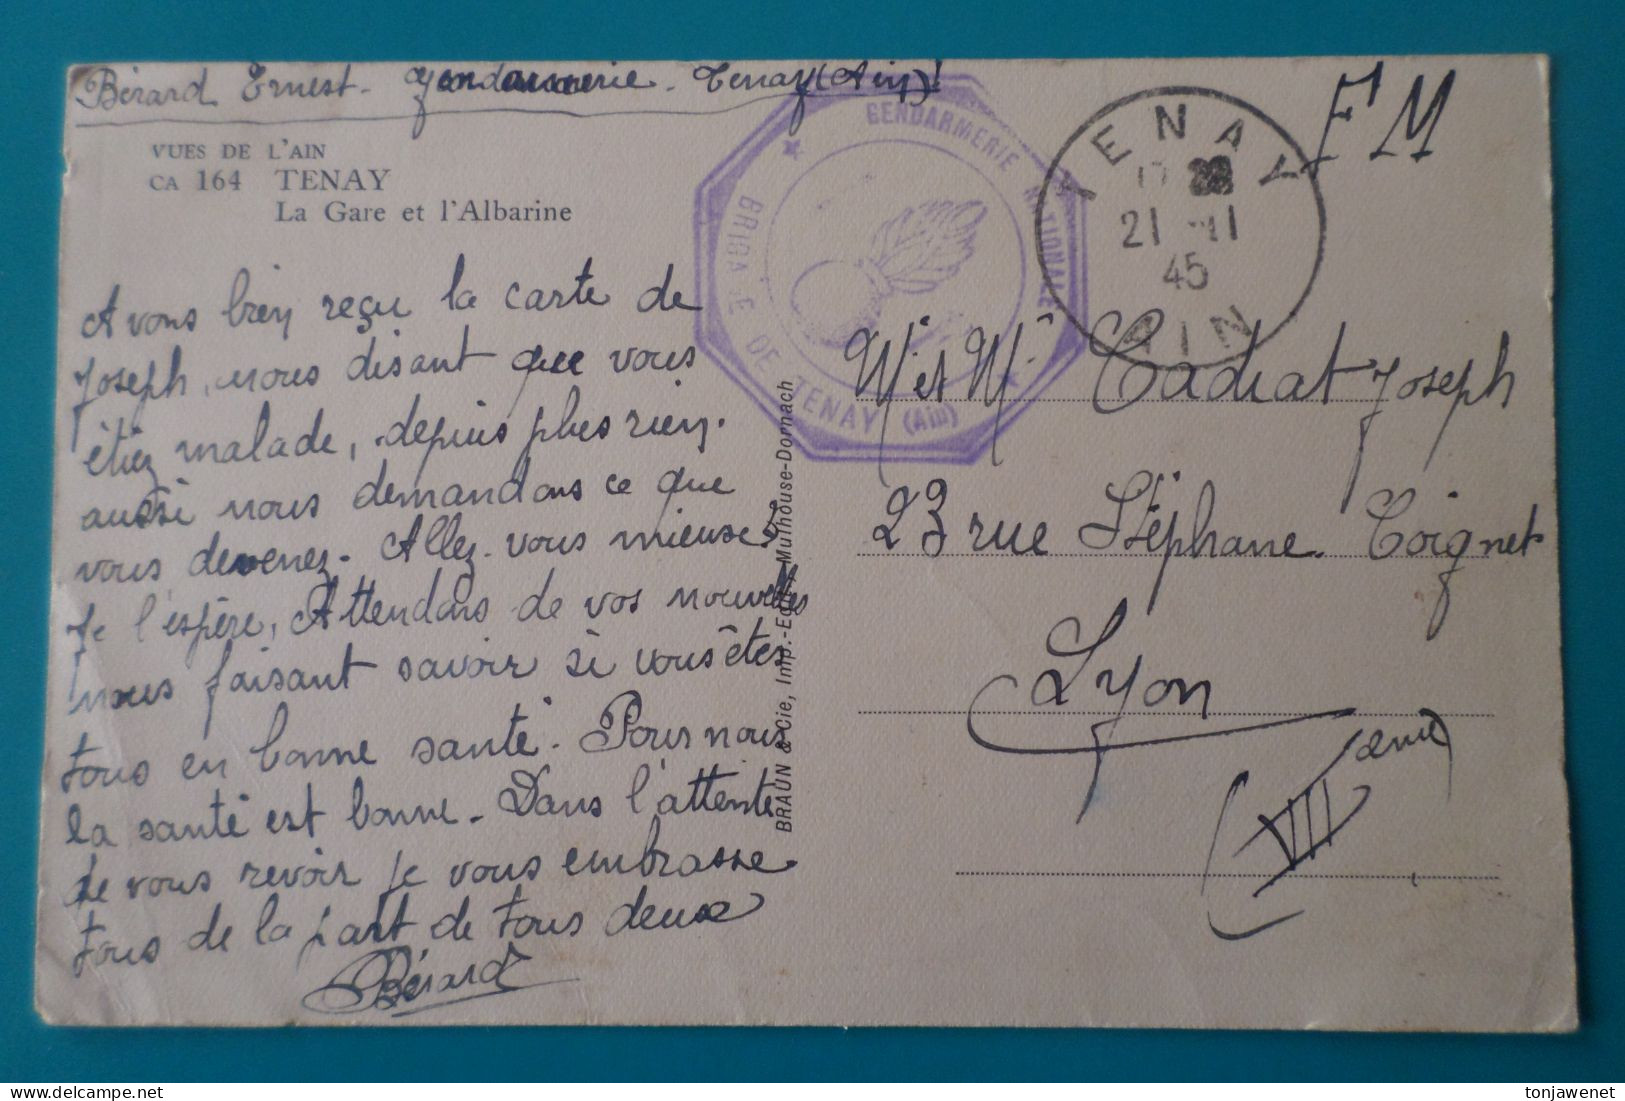 Bérard Ernest - gendarmerie - Tenay (Ain)
VUES DE L'AIN
CA 164 TENAY
La Gare et l'Albarine
Avons bien reçu la carte de
Joseph, nous disant que vous
étiez malade, depuis plus rien.
aussi nous demandons ce que
vous devenez - Allez-vous mieuse?
Je l'espère, Attendons de vos nouvelles
nous faisant savoir si vous êtes
tous en bonne santé. Pour nous
la santé est bonne - Dans l'attente
de vous revoir je vous embrasse
tous de la part de tous deux
Bérard
BRAUN & Cie, Imp.-Edit., Mulhouse-Dornach
GENDARMERIE NATIONALE
BRIGADE DE TENAY (Ain)
TENAY
21 -11
45
AIN
F M
Mr et Mme Cadiat Joseph
23 rue Stéphane Coignet
Lyon
(VIII ème)
tonjawenet
delcampe.net